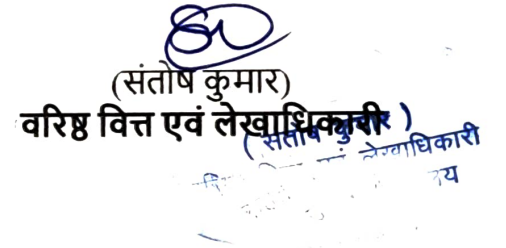 (संतोष कुमार)
वरिष्ठ वित्त एवं लेखाधिकारी
( संतोष कुमार )
एवं लेखाधिकारी